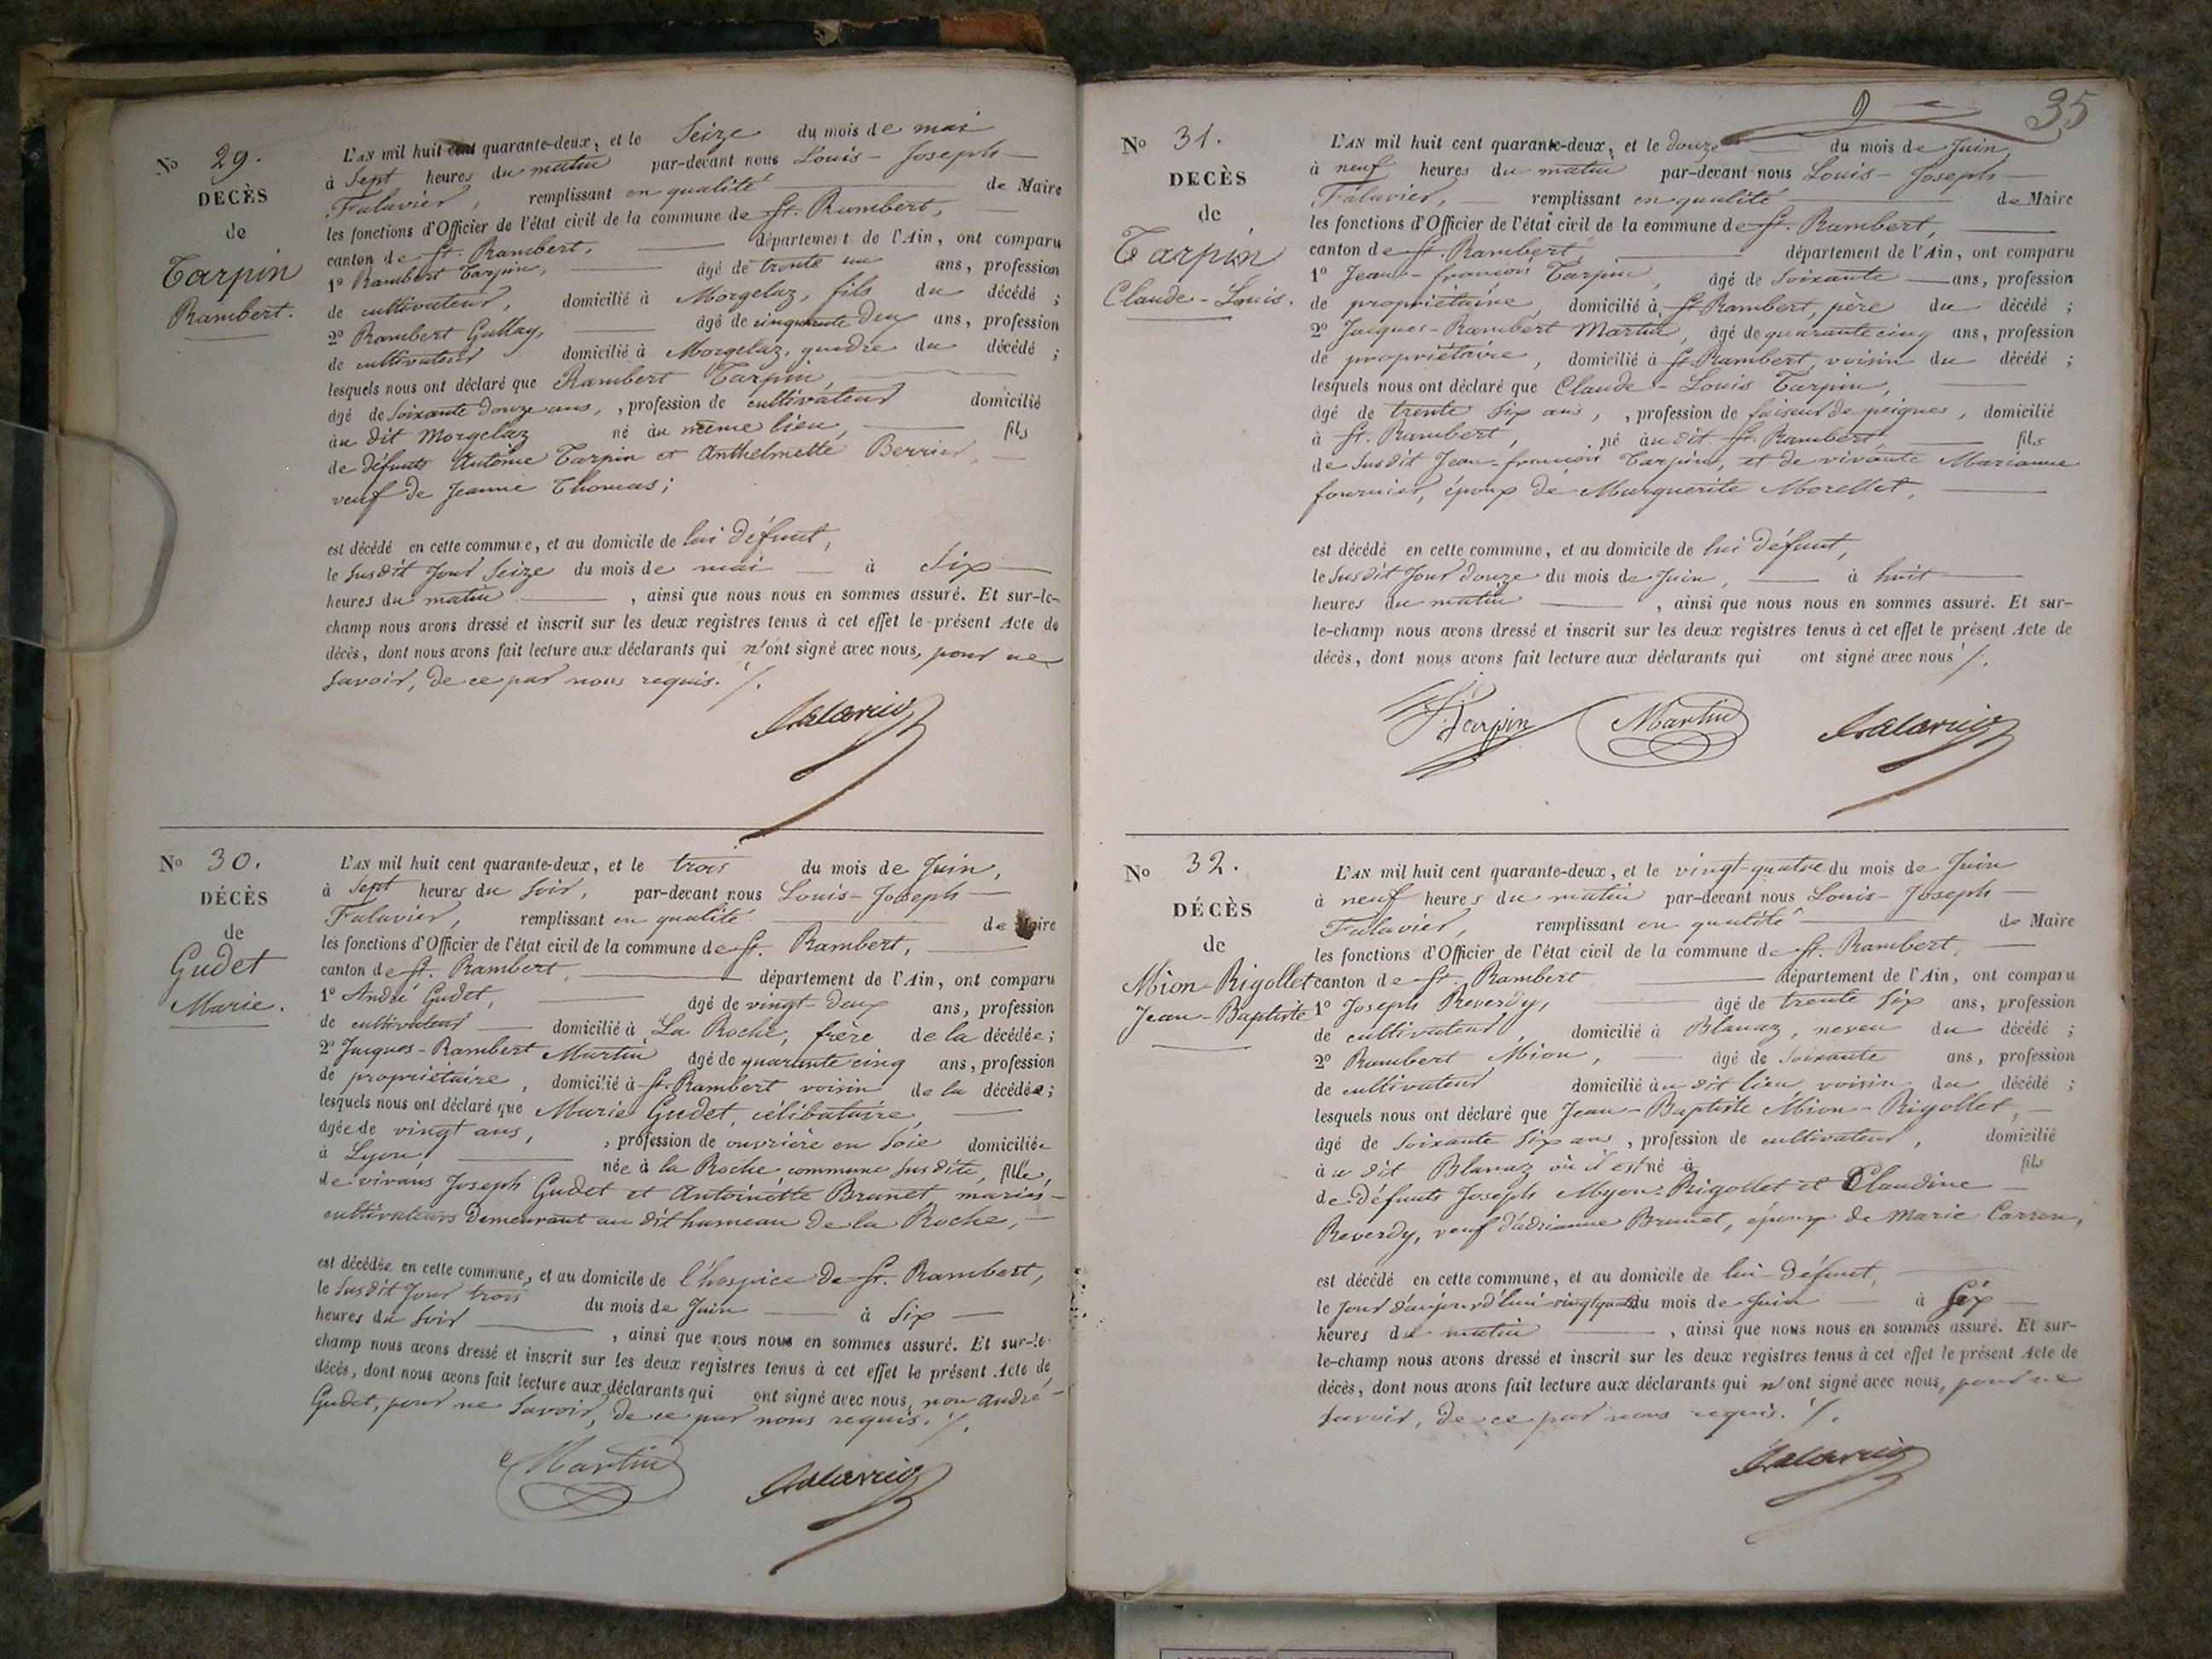 No 29.
DECÈS
de
Tarpin
Rambert.
L'AN mil huit cent quarante-deux, et le Seize du mois de mai
à Sept heures du matin par-devant nous Louis-Joseph
Falavier, remplissant en qualité de Maire
les fonctions d'Officier de l'état civil de la commune de St. Rambert,
canton de St. Rambert, département de l'Ain, ont comparu
1o Rambert Tarpin, âgé de trente un ans, profession
de cultivateur, domicilié à Morgelaz, fils du décédé ;
2o Rambert Gallay, âgé de cinquante deux ans, profession
de cultivateur domicilié à Morgelaz, gendre du décédé ;
lesquels nous ont déclaré que Rambert Tarpin,
âgé de Soixante douze ans, , profession de cultivateur domicilié
au dit Morgelaz né au même lieu, fils
de défunts Antoine Tarpin et Anthelmette Berrier,
veuf de Jeanne Thomas ;
est décédé en cette commune, et au domicile de lui défunt,
le susdit jour Seize du mois de mai à Six
heures du matin , ainsi que nous nous en sommes assuré. Et sur-le-
champ nous avons dressé et inscrit sur les deux registres tenus à cet effet le présent Acte de
décès, dont nous avons fait lecture aux déclarants qui n'ont signé avec nous, pour ne
savoir, de ce par nous requis. /.
Falavier
No 30.
DÉCÈS
de
Gudet
Marie.
L'AN mil huit cent quarante-deux, et le trois du mois de Juin,
à Sept heures du soir, par-devant nous Louis-Joseph
Falavier, remplissant en qualité de Maire
les fonctions d'Officier de l'état civil de la commune de St. Rambert,
canton de St. Rambert, département de l'Ain, ont comparu
1o André Gudet, âgé de vingt-deux ans, profession
de cultivateur domicilié à La Roche, frère de la décédée ;
2o Jacques-Rambert Martin âgé de quarante cinq ans, profession
de propriétaire, domicilié à St. Rambert voisin de la décédée ;
lesquels nous ont déclaré que Marie Gudet, célibataire,
âgée de vingt ans, , profession de ouvrière en soie domiciliée
à Lyon, née à la Roche commune susdite, fille,
de vivans Joseph Gudet et Antoinette Brunet, mariés
cultivateurs demeurant au dit hameau de la Roche,
est décédée en cette commune, et au domicile de l'hospice de St. Rambert,
le susdit jour trois du mois de Juin à Six
heures du soir , ainsi que nous nous en sommes assuré. Et sur-le-
champ nous avons dressé et inscrit sur les deux registres tenus à cet effet le présent Acte de
décès, dont nous avons fait lecture aux déclarants qui ont signé avec nous, non andré
Gudet, pour ne savoir, de ce par nous requis. /.
Martin Falavier
35
No 31.
DECÈS
de
Tarpin
Claude-Louis.
L'AN mil huit cent quarante-deux, et le douze du mois de Juin,
à neuf heures du matin par-devant nous Louis-Joseph
Falavier, remplissant en qualité de Maire
les fonctions d'Officier de l'état civil de la commune de St. Rambert,
canton de St. Rambert département de l'Ain, ont comparu
1o Jean-françois Tarpin, âgé de Soixante ans, profession
de propriétaire, domicilié à St. Rambert, père du décédé ;
2o Jacques-Rambert Martin, âgé de quarante cinq ans, profession
de propriétaire, domicilié à St. Rambert, voisin du décédé ;
lesquels nous ont déclaré que Claude-Louis Tarpin,
âgé de trente Six ans, , profession de faiseur de peignes, domicilié
à St. Rambert, né au dit St. Rambert, fils
de susdit Jean-françois Tarpin, et de vivante Marianne
fournier, époux de Marguerite Morellet,
est décédé en cette commune, et au domicile de lui défunt,
le susdit jour douze du mois de Juin, à huit
heures du matin , ainsi que nous nous en sommes assuré. Et sur-
le-champ nous avons dressé et inscrit sur les deux registres tenus à cet effet le présent Acte de
décès, dont nous avons fait lecture aux déclarants qui ont signé avec nous /.
Tarpin Martin Falavier
No 32.
DÉCÈS
de
Mion-Rigollet
Jean-Baptiste
L'AN mil huit cent quarante-deux, et le vingt-quatre du mois de Juin
à neuf heures du matin par-devant nous Louis-Joseph
Falavier, remplissant en qualité de Maire
les fonctions d'Officier de l'état civil de la commune de St. Rambert,
canton de St. Rambert département de l'Ain, ont comparu
1o Joseph Reverdy, âgé de trente Six ans, profession
de cultivateur, domicilié à Blanaz, neveu du décédé ;
2o Rambert Mion, âgé de Soixante ans, profession
de cultivateur domicilié au dit lieu voisin du décédé ;
lesquels nous ont déclaré que Jean-Baptiste Mion-Rigollet,
âgé de Soixante Six ans, profession de cultivateur, domicilié
au dit Blanaz où il est né à fils
de défunts Joseph Myon-Rigollet et Claudine
Reverdy, veuf d'adrianne Brunet, époux de Marie Carron,
est décédé en cette commune, et au domicile de lui défunt,
le jour d'aujourd'hui vingt quatre du mois de Juin à Six
heures du matin , ainsi que nous nous en sommes assuré. Et sur-
le-champ nous avons dressé et inscrit sur les deux registres tenus à cet effet le présent Acte de
décès, dont nous avons fait lecture aux déclarants qui n'ont signé avec nous, pour ne
savoir, de ce par nous requis. /.
Falavier